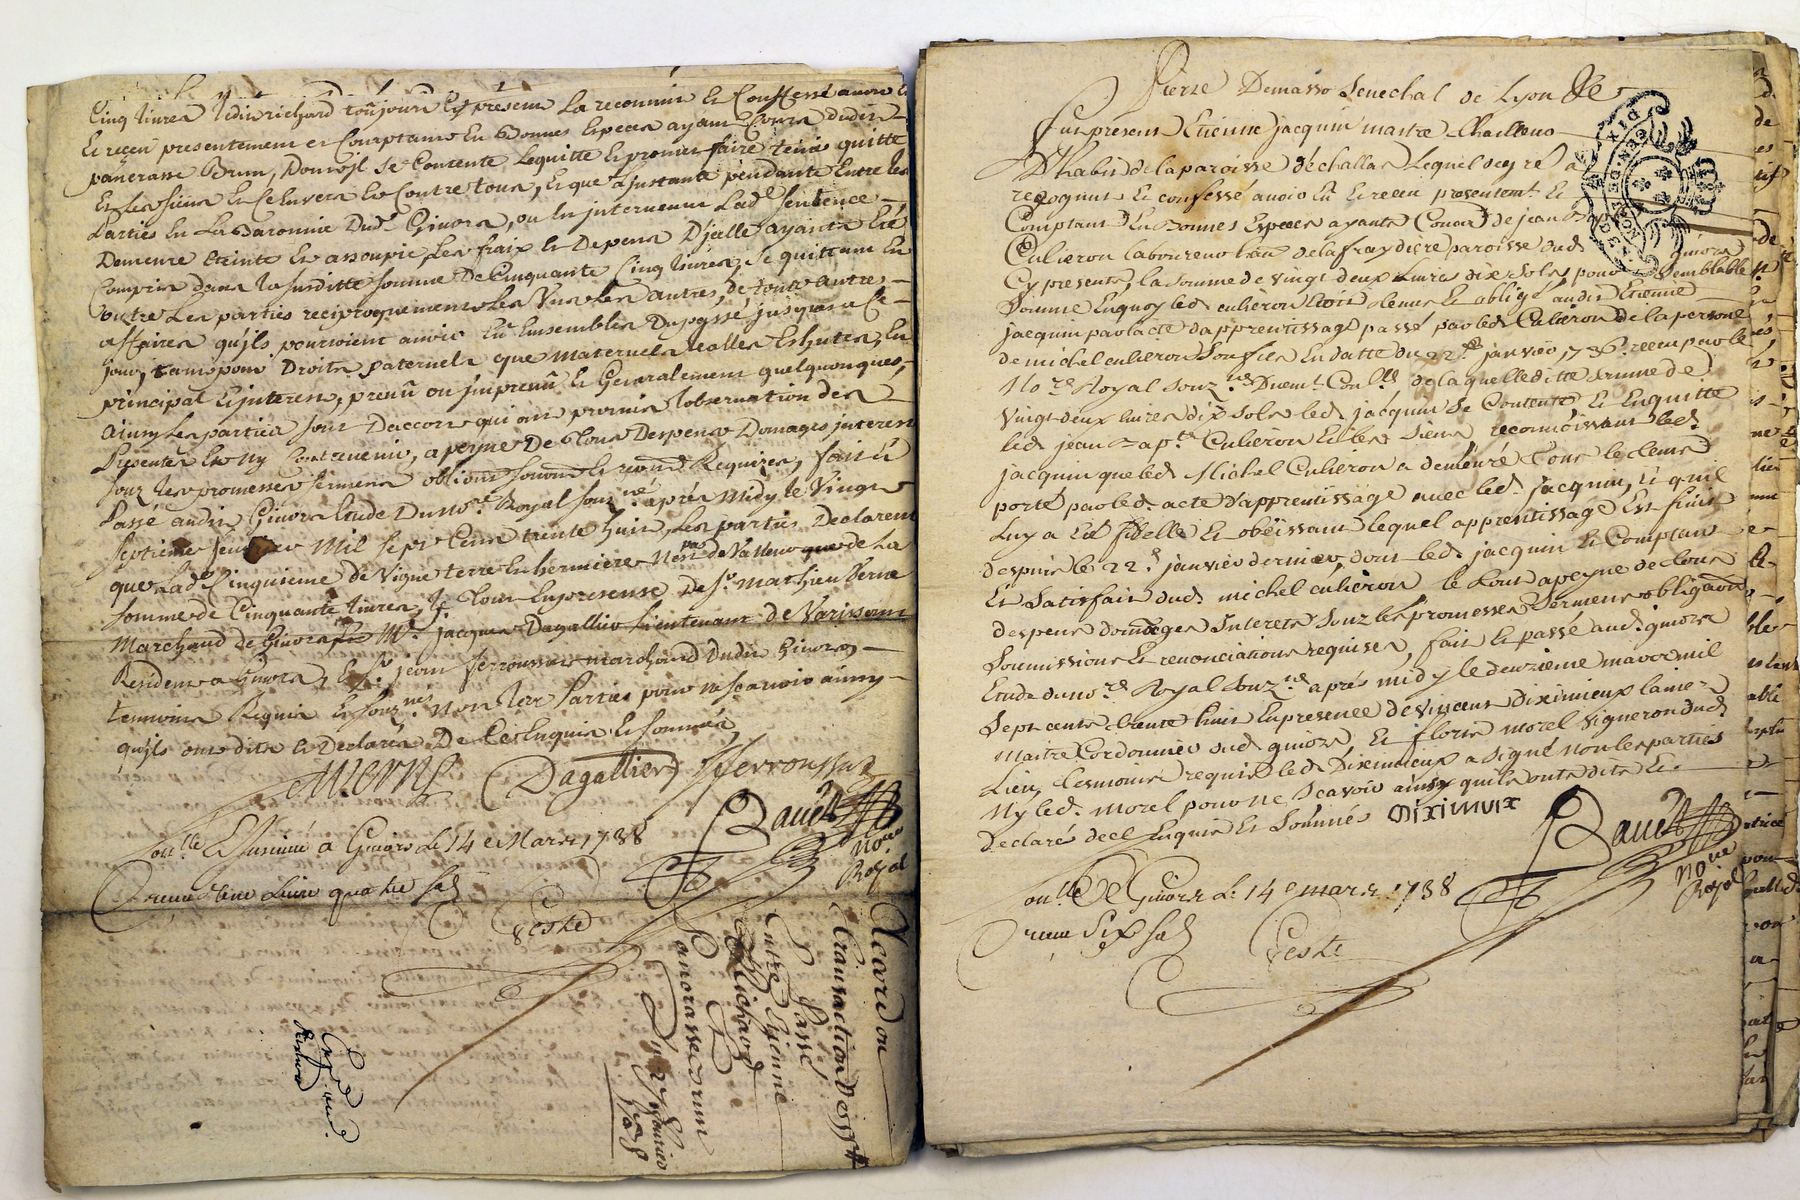 Cinq livres ledit richard toûjours Cy present La reconnut et Confessé avoir
Et reçeu presentement et Comptant En Bonnes Especes ayant Cours dudit
panerasse Brun, Dont il se Contente Lequitte Et promet faire tenir quitte
Et Les siens Et Ce Envers Et Contre tous, Et que à Jnstante pendante Entre les
Parties En La Baronnie Dud. Givors, ou Est jntervenue Lad. sentence
Demeure Eteinte Et assoupie, Les fraix Et Depens D'jcelle ayants Eté
Compris dans la susditte somme De Cinquante Cinq livres, se quittant En
outre Les parties reciproquement Les Unes Les autres, de toute autre
affaires qu'jls pourroient avoir Eü Ensembles Du passé jusques a Ce
jour, tant pour Droits paternels que maternels
principal Et jnterests, preuû ou jmpreuû Et Generalement quelquonques,
Ainsy Les parties sont D'accort qui ont promis L'observation des
Presentes Et Ny Contrevenir, a peyne De Tous Despens Domages jnterests
souz Les promesses sermens obligaons soumons Et renonons Requises, fait et
Passé audit Givors Etude Du no.re Royal souz.né après Midy le Vingt
septieme Mil sept Cent trente huit, Les parties Declarent
que Lad. Cinquieme de Vigne terre Et hermiere de Valleur que de La
somme de Cinquante livres, Le Tout En presence De s.r Mathieu Verne
Marchand de Givors Et M.e jacques Dagallier Lieutenant de Varissant
Resident a Givors, Et s.r jean ferroussat marchand Dudit Givors
temoins Requis Et souz.nés non Les Parties pour ne sçavoir ainsy
qu'jls ont dits Et Declarés De Ce Enquis Et sommés,
MVerne Dagallier Jferroussat
Bauet
No.re
Royal
Con.llé Et Jnsinué à Givors Le 14 e Mars 1738
Receu Une Livre quatre sols
Teste
Accord ou
Transaction
Passé
Entre Etienne
Richard
Et
Panerasse Brun
Du 27 
1738
Pierre Demasso Senechal de Lyon
Fut present Etienne jacquin maitre
D'habit de la paroisse d'échallas Lequel de gré a
recognut Et confessé avoir Eü Et receu presentem.t Et
Comptant En Bonnes Especes ayants Cours de jean Bap
Culieron laboureur han de la fraydiere paroisse dud. givors
Cy present, la somme de vingt deux livres dix sols, pour semblable
somme En quoy led. culieron Etoit tenu Et obligé audit Etienne
jacquin par l'acte d'apprentissage passé par led. Culieron de la personne
de michel culieron son fils En datte du 22.e janvier 1736. receu par le
No.re Royal souz.né Duem.t Con.llé de laquelle ditte somme de
vingt deux livres dix sols led. jacquin se Contente Et En quitte
led. jean Bap.te Culieron Et les siens reconnoissant led.
jacquin que led. Michel Culieron a demeuré Tout le tems
porté par led. acte d'apprentissage avec led. jacquin, Et qu'il
Luy a Eté fidelle Et obeïssant lequel apprentissage Est finit
despuis le 22.e janvier dernier, dont led. jacquin Et Comptant
Et satisfait dud. michel culieron le tout a peyne de tous
despens domages Interets souz les promesses sermens obligaons
soumissions Et renonciations requises, fait Et passé aud. givors
Etude du no.re Royal souz.né après midy le deuzieme mars mil
sept cents trente huit En presence de vincent diximieux lame
maitre Cordonnier dud. givors, Et floris morel vigneron dud.
Lieu, temoins requis led. Diximieux a signé non les parties
Ny led. morel pour ne sçavoir ainsy qu'ils onts dits Et
Declarés de ce Enquis Et sommés DIXIMIUX
Bauet
No.re
Royal
Con.llé Et Givors Le 14 e mars 1738
receu six sols
Teste